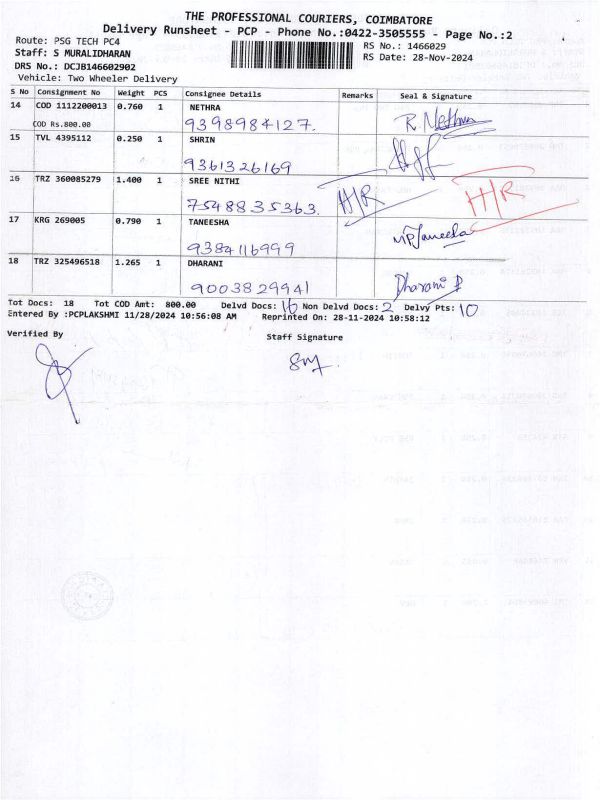 THE PROFESSIONAL COURIERS, COIMBATORE
Delivery Runsheet - PCP - Phone No.:0422-3505555 - Page No.:2
Route: PSG TECH PC4 RS No.: 1466029
Staff: S MURALIDHARAN RS Date: 28-Nov-2024
DRS No.: DCJB146602902
Vehicle: Two Wheeler Delivery
S No Consignment No Weight PCS Consignee Details Remarks Seal & Signature
14 COD 1112200013 0.760 1 NETHRA
COD Rs.800.00 9398984127. R. Nethra
15 TVL 4395112 0.250 1 SHRIN
9361326169
16 TRZ 360085279 1.400 1 SREE NITHI
7548835363. H/R H/R
17 KRG 269005 0.790 1 TANEESHA
9384116999 MP Taneesha
18 TRZ 325496518 1.265 1 DHARANI
9003829941 Dharani P
Tot Docs: 18 Tot COD Amt: 800.00 Delvd Docs: 16 Non Delvd Docs: 2 Delvy Pts: 10
Entered By :PCPLAKSHMI 11/28/2024 10:56:08 AM Reprinted On: 28-11-2024 10:58:12
Verified By Staff Signature